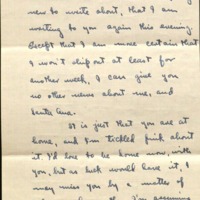 new to write about, that I am
waiting to you again this evening.
Except that I am more certain that
I won't ship out at least for
another week, I can give you
no other news about me, and
Santa Ana.
It is just that you are at
home, and I'm tickled pink about
it. I'd love to be home now, with
you, but as luck would have it, I
may miss you by a matter of
I'm assuming